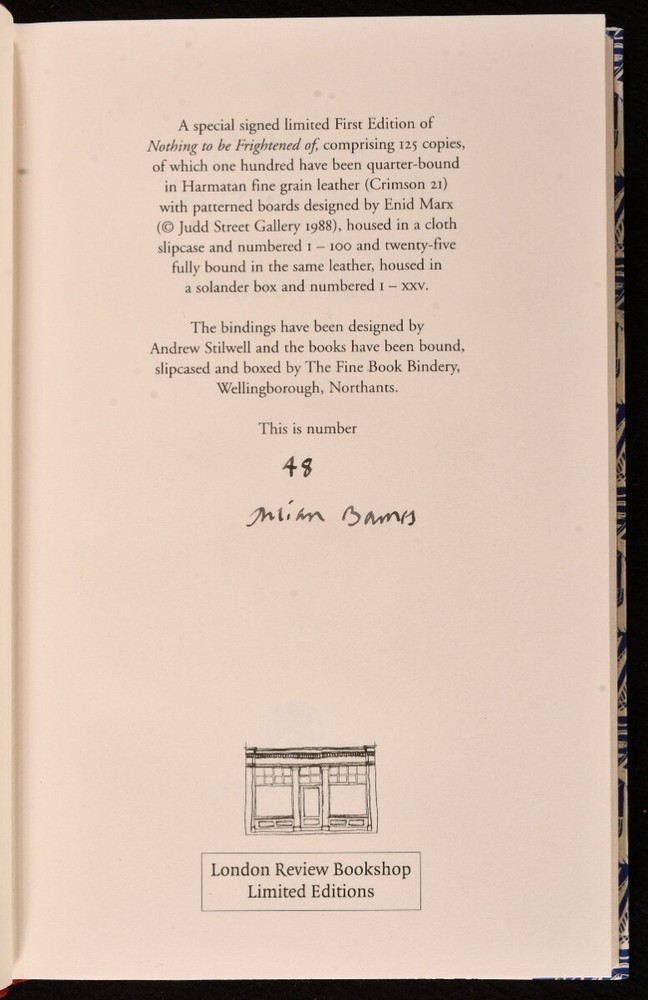 A special signed limited First Edition of
Nothing to be Frightened of, comprising 125 copies,
of which one hundred have been quarter-bound
in Harmatan fine grain leather (Crimson 21)
with patterned boards designed by Enid Marx
(© Judd Street Gallery 1988), housed in a cloth
slipcase and numbered 1 – 100 and twenty-five
fully bound in the same leather, housed in
a solander box and numbered I – XXV.
The bindings have been designed by
Andrew Stilwell and the books have been bound,
slipcased and boxed by The Fine Book Bindery,
Wellingborough, Northants.
This is number
48
Julian Barnes
London Review Bookshop
Limited Editions